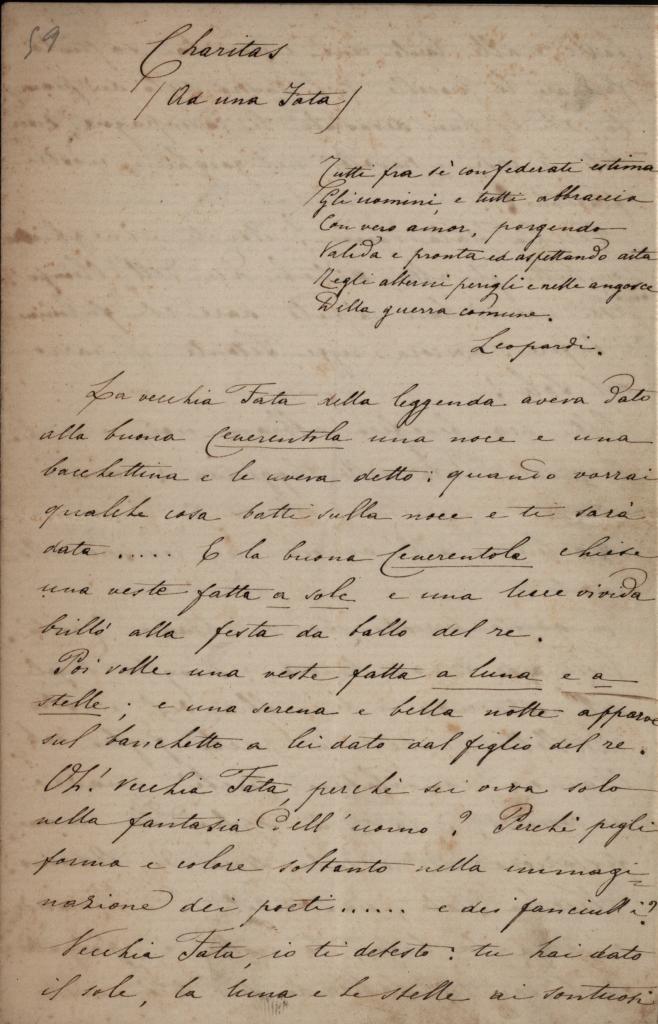 59
Charitas
(Ad una Fata)
Tutti fra sè confederati estima
Gli uomini, e tutti abbraccia
Con vero amor, porgendo
Valida e pronta ed aspettando aita
Negli alterni perigli e nelle angosce
Della guerra comune.
Leopardi.
La vecchia Fata della leggenda aveva dato
alla buona Cenerentola una noce e una
bacchettina e le aveva detto: quando vorrai
qualche cosa batti sulla noce e ti sarà
data ..... E la buona Cenerentola chiese
una veste fatta a sole e una luce vivida
brillò alla festa da ballo del re.
Poi volle una veste fatta a luna e a
stelle; e una serena e bella notte apparve
sul banchetto a lei dato dal figlio del re.
Oh! Vecchia Fata, perchè sei viva solo
nella fantasia dell'uomo? Perchè pegli
forma e colore soltanto nella immagi-
nazione dei poeti ...... e dei fanciulli?
Vecchia Fata, io ti detesto: tu hai dato
il sole, la luna e le stelle ai sontuosi